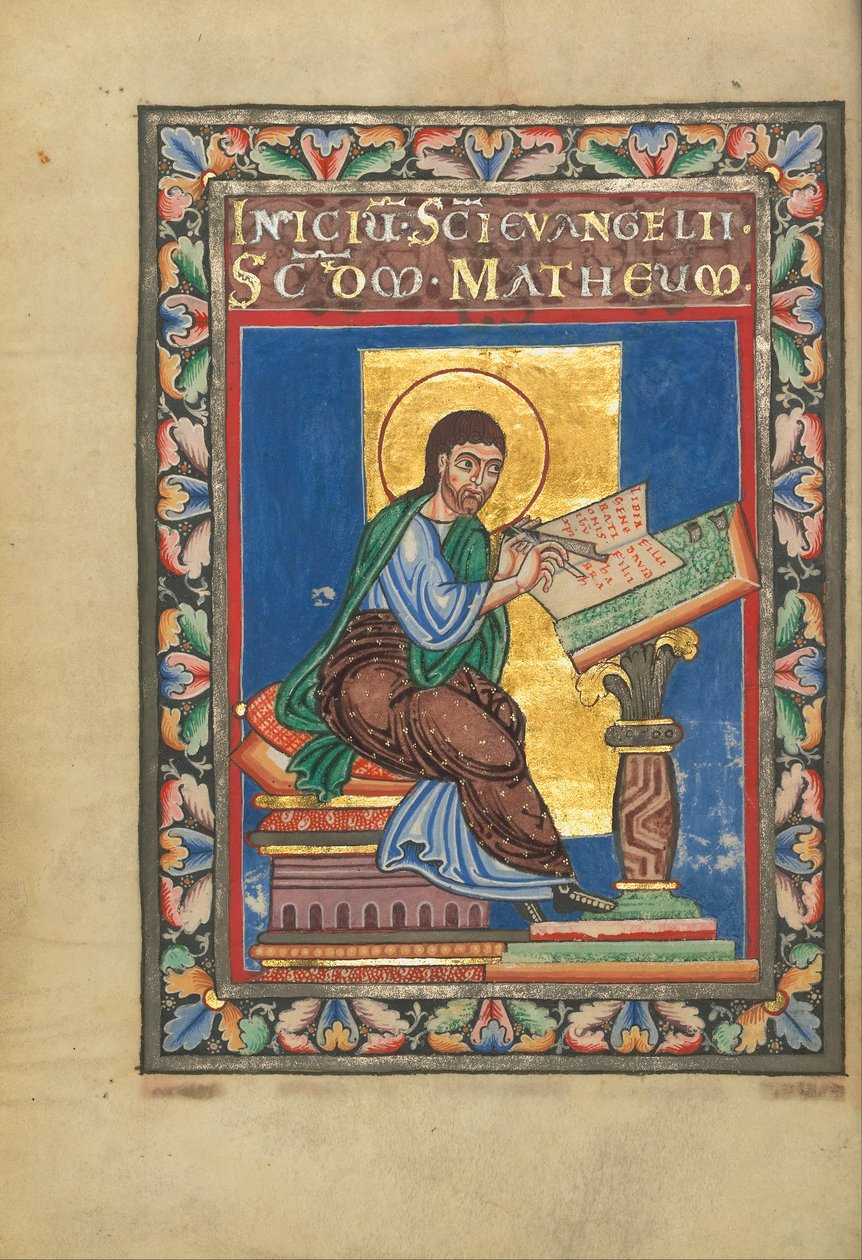 INICIŪ·SC̄I EVANGELII·
SC̄DM·MATHEUM·
LIBER
GENE
RATI
ONIS
ihū
xp̄i
filii
DAVID
filii